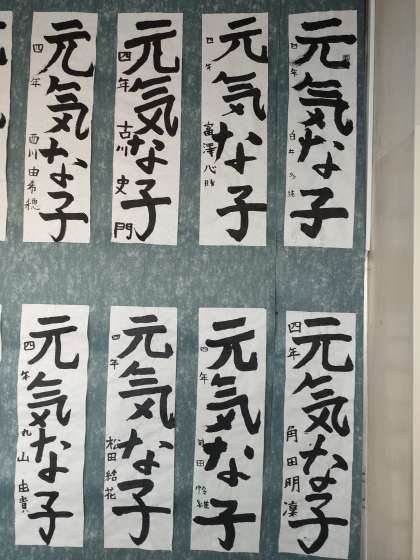 元気な子
四年
白井
元気な子
四年
富澤心
元気な子
四年
古川史門
元気な子
四年
西川由希穂
元気な子
四年
角田明凜
元気な子
四年
田
元気な子
四年
松田結花
元気な子
四年
丸山由貴